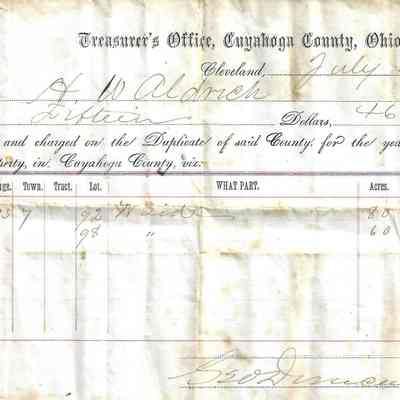 Treasurer's Office, Cuyahoga County, Ohio
Cleveland, July
H. W. Aldrich
Fifteen Dollars, 46
and charged on the Duplicate of said County, for the yea
perty, in Cuyahoga County, viz:
nge. Town. Tract. Lot. WHAT PART. Acres.
7 92 80
98 " 60
Geo